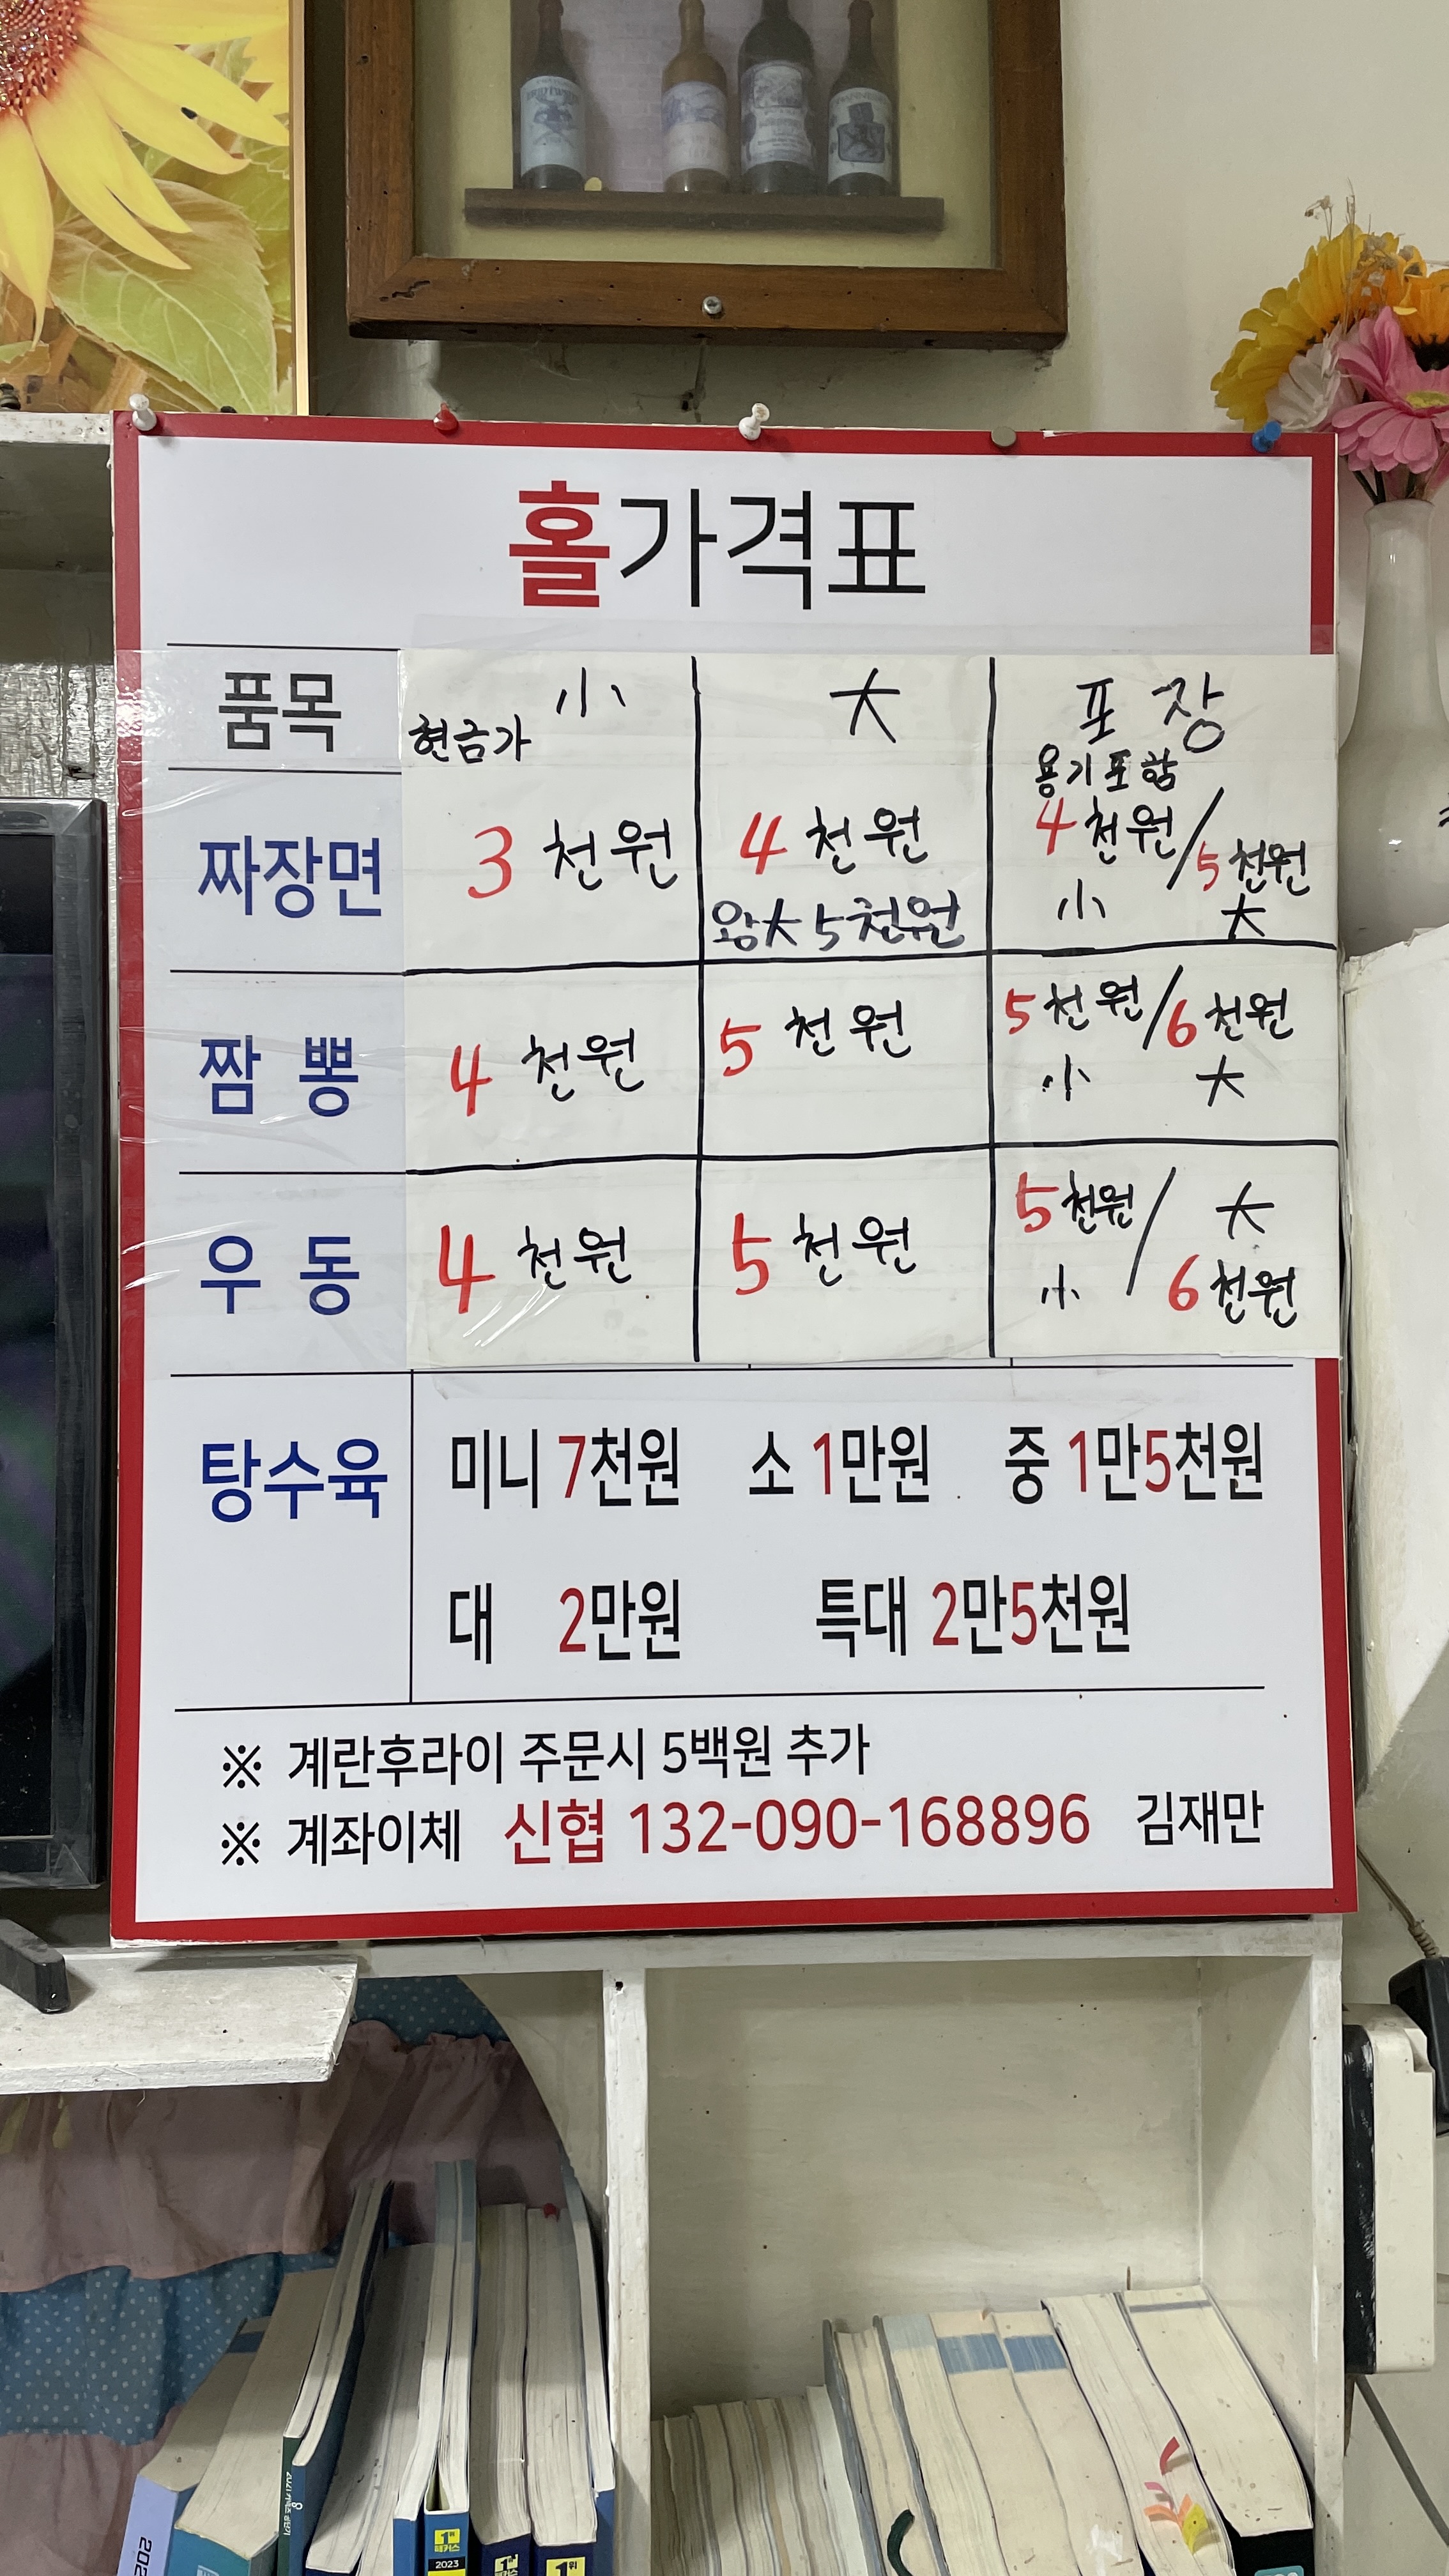 홀가격표
품목 小 大 포장
현금가 용기포함
짜장면 3천원 4천원 4천원/5천원
왕大 5천원 小 大
짬뽕 4천원 5천원 5천원/6천원
小 大
우동 4천원 5천원 5천원/大
小 6천원
탕수육 미니 7천원 소 1만원 중 1만5천원
대 2만원 특대 2만5천원
※ 계란후라이 주문시 5백원 추가
※ 계좌이체 신협 132-090-168896 김재만
1위
해커스
2023
1위
1위